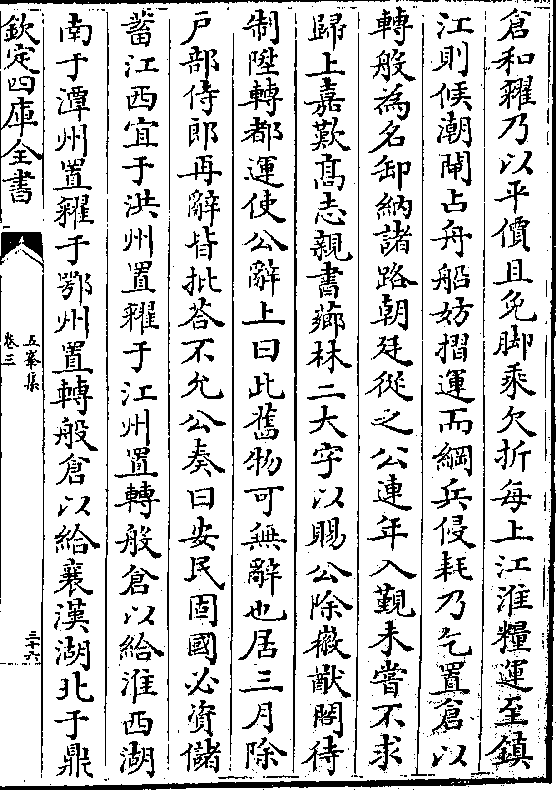 倉和糴乃以平價且免脚乘欠折每上江淮糧運至鎮
江則候潮閘占舟船妨摺運而綱兵侵耗乃乞置倉以
轉般為名卸納諸路朝廷從之公連年入覲未嘗不求
歸上嘉歎髙志親書薌林二大字以賜公除徽猷閣待
制陞轉都運使公辭上曰此舊物可無辭也居三月除
户部侍郎再辭皆批荅不允公奏曰安民固國必資儲
蓄江西宜于洪州置糴于江州置轉般倉以給淮西湖
南于潭州置糴于鄂州置轉般倉以給襄漢湖北于鼎
欽定四庫全書
五峯集
卷三
三十六